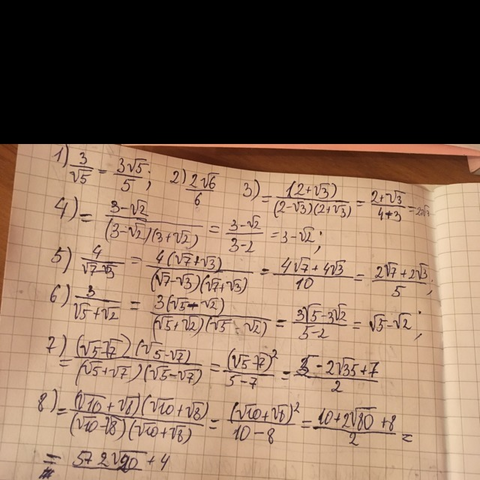 1) 3/√5 = 3√5/5; 2) 2√6/6 3) = 1(2+√3)/(2-√3)(2+√3) = 2+√3/4+3 =
4) = 3-√2/(3-√2)(3+√2) = 3-√2/3-2 = 3-√2;
5) 4/√7-√3 = 4(√7+√3)/(√7-√3)(√7+√3) = 4√7+4√3/10 = 2√7+2√3/5;
6) 3/√5+√2 = 3(√5-√2)/(√5+√2)(√5-√2) = 3√5-3√2/5-2 = √5-√2;
7) = (√5-√7)(√5-√7)/(√5+√7)(√5-√7) = (√5-7)²/5-7 = 5-2√35+7/2
8) = (√10+√8)(√10+√8)/(√10-√8)(√10+√8) = (√10+√8)²/10-8 = 10+2√80+8/2 =
= 5+2√20+4